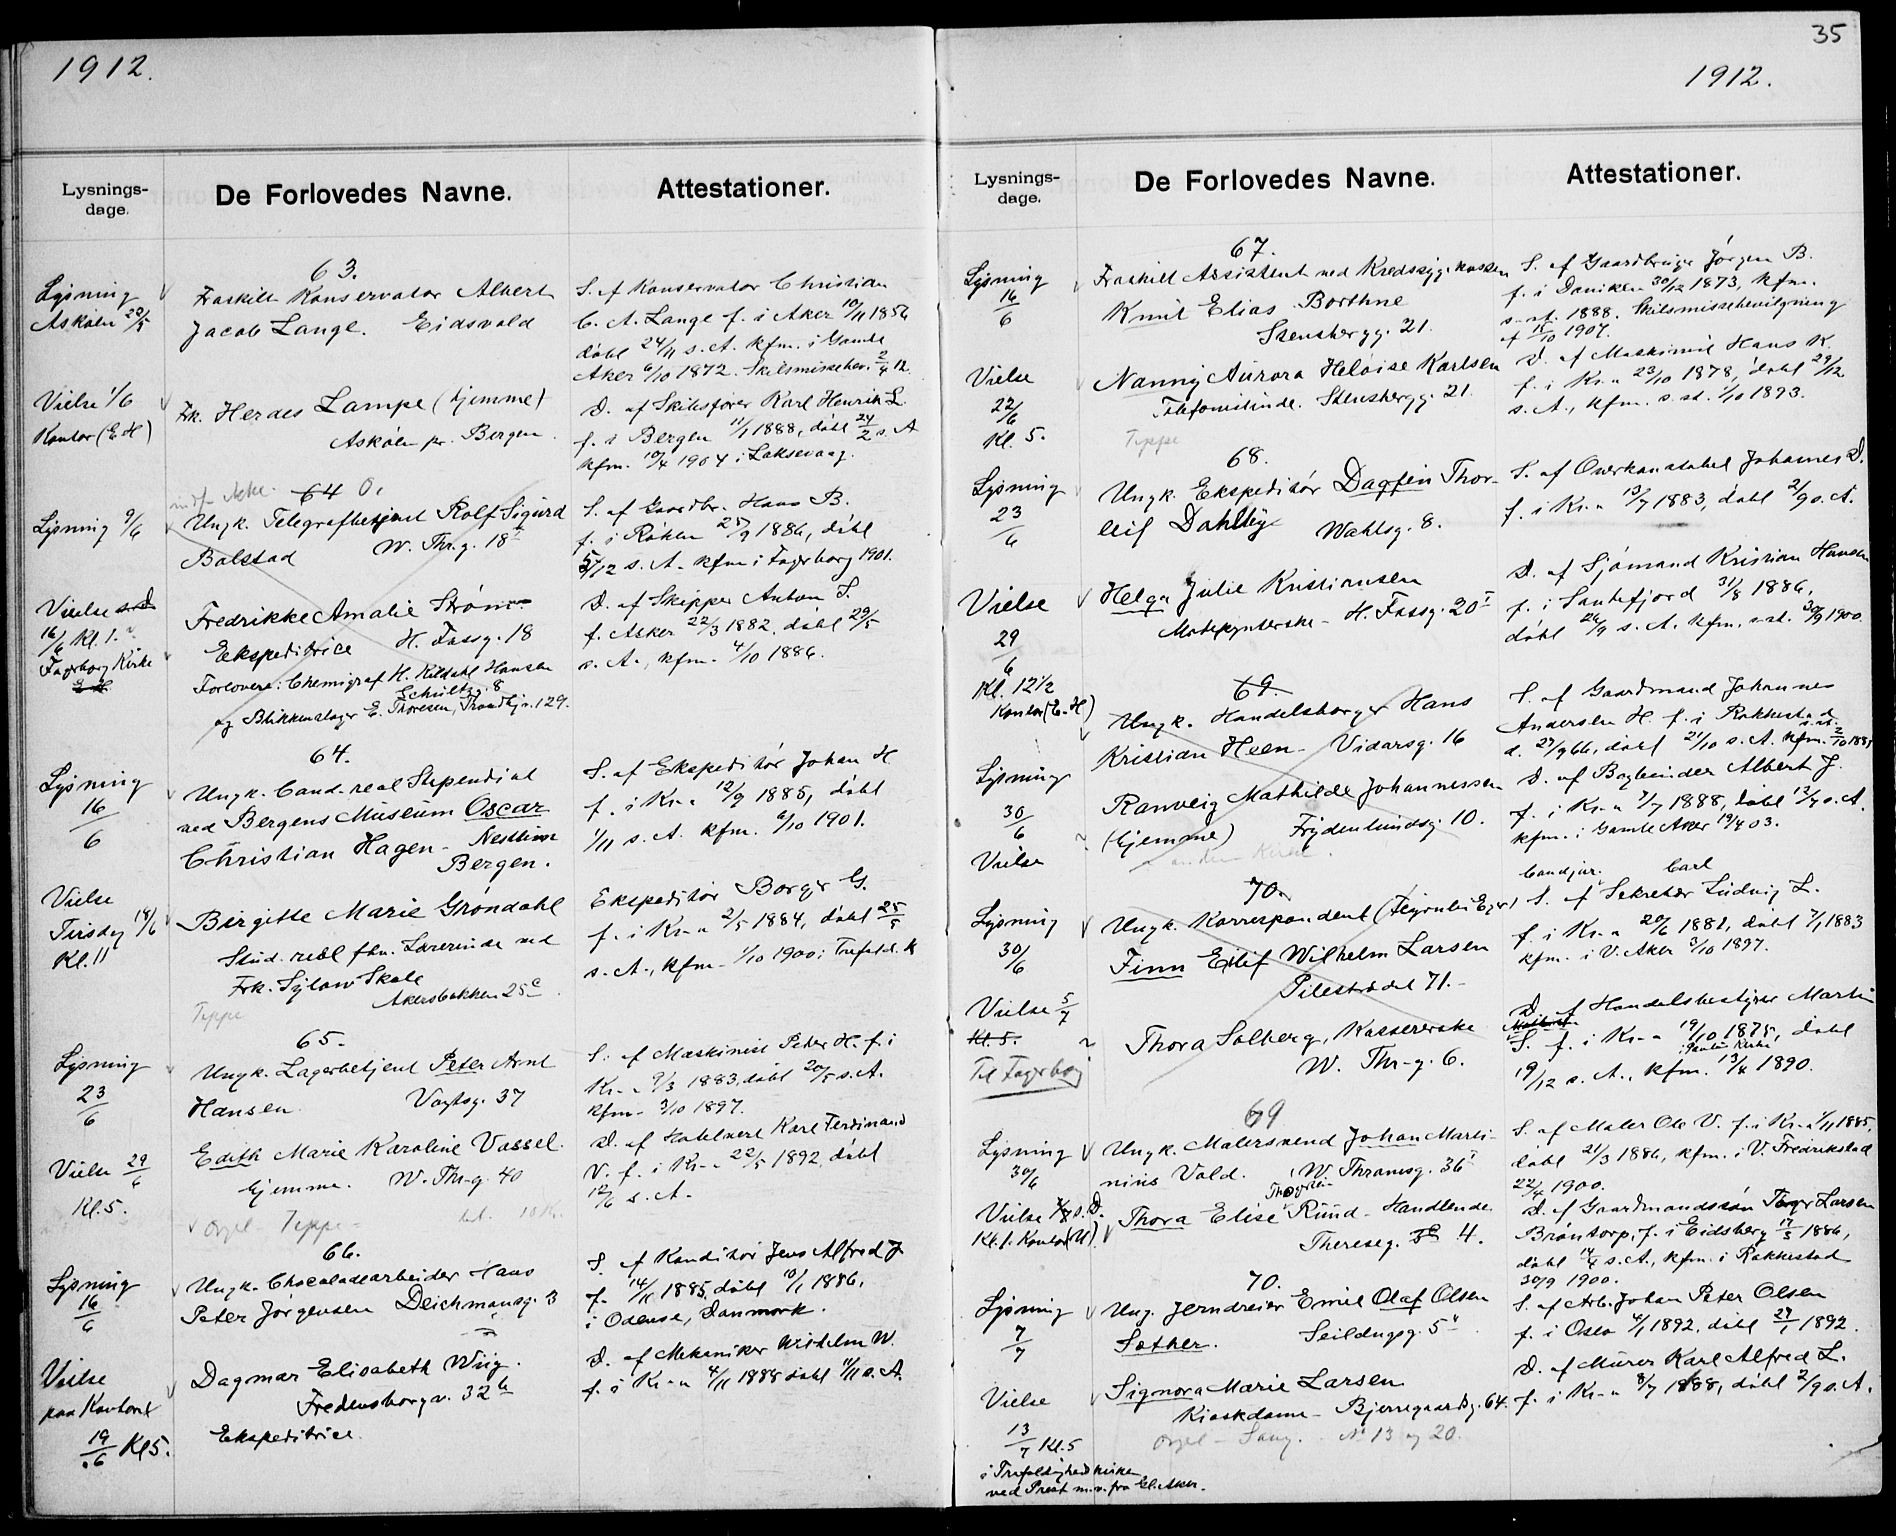 1912.
Lysnings-
dage.
De Forlovedes Navne.
Attestationer.
63.
Lysning
Askøen 20/5
Fraskilt Konservator Albert
Jacob Lange. Eidsvold
S. af Konservator Christian
C. A. Lange f. i Aker 10/11 1856
døbt 24/11 s. A. kfm. i Gamle
Aker 6/10 1872. Skilsmissebev. 2/4 12.
Vielse 1/6
Kontor (E.H)
Frk. Herdes Lampe (hjemme)
Askøen pr. Bergen.
D. af Skibsfører Karl Henrik L.
f. i Bergen 11/1 1888, døbt 24/2 s. A
kfm. 10/4 1904 i Laksevaag.
64
Lysning 9/6
Ungk. Telegrafbetjent Rolf Sigurd
Bolstad W. Thr.g. 18
S. af Gaardbr. Hans B.
f. i Røken 25/9 1886, døbt
5/12 s. A. kfm i Fagerborg 1901.
Vielse
16/6 Kl. 1.
Fagerborg Kirke
E. H.
Fredrikke Amalie Strøm
Ekspeditrice H. Fossg. 18
Forlovere: Chemigraf H. Kildahl Hansen
Schultzg. 8
og Blikkenslager E. Thoresen, Trondhjv. 129.
D. af Skipper Anton S.
f. Asker 22/3 1882, døbt 29/5
s. A., kfm. 4/10 1886.
64.
Lysning
16/6
Ungk. Cand. real Stipendiat
ved Bergens Museum Oscar
Christian Hagen - Nesttun
Bergen.
S. af Ekspeditør Johan H
f. i Kr.a 12/9 1885, døbt
1/11 s. A. kfm. 6/10 1901.
Vielse
Tirsdag 18/6
Kl. 11
Birgitte Marie Grøndahl
Stud. real fhv. Lærerinde ved
Frk. Sylow Skole
Akersbakken 25 c
Teppe
Ekspeditør Borger G.
f. i Kr.a 2/5 1884, døbt 25/5
s. A., kfm. 1/10 1900 i Trefold. K
65.
Lysning
23/6
Ungk. Lagerbetjent Peter Arnt
Hansen Vogtsg. 37
S. af Maskinist Peter H. f. i
Kr.a 9/3 1883, døbt 20/5 s. A.
kfm. 3/10 1897.
Vielse 29/6
Kl. 5.
Edith Marie Karoline Vassel.
Hjemme. W. Thr.g. 40
Orgel - Teppe -
D. af Karl Ferdinand
V. f. i Kr.a 22/5 1892, døbt
12/6 s. A.
66.
Lysning
16/6
Ungk. Chocoladearbeider Hans
Peter Jørgensen Deichmansg. 3
S. af Konditor Jens Alfred J
f. 14/11 1885, døbt 10/1 1886,
i Odense, Danmark.
Vielse
paa Kontoret
19/6 Kl 5.
Dagmar Elisabeth Wiig.
Fredensborgv. 32 b
Ekspeditrice.
D. af Mekaniker Wilhelm W.
f. i Kr.a 4/11 1888 døbt 11/11 s. A.
35
1912.
Lysnings-
dage.
De Forlovedes Navne.
Attestationer.
67.
Lysning
16/6
Fraskilt Assistent ved Kredssyg.kassen
Knut Elias Borthne
Stensbergg. 21.
S. af Gaardbruger Jørgen B.
f. i Daviken 30/12 1873, kfm.
s. st. 1888. Skilsmissebevilgning
af 15/10 1907.
Vielse
22/6
Kl. 5.
Nanny Aurora Heloise Karlsen
Telefonistinde. Stensbergg. 21.
Teppe
D. af Maskinist Hans K.
f. i Kr.a 23/10 1878, døbt 29/12
s. A., kfm. s. st. 1/10 1893.
68.
Lysning
23/6
Ungk. Ekspeditør Dagfin Thor-
leif Dahlby Wahlsg. 8.
S. af Overkonstabel Johannes D.
f. i Kr.a 13/7 1883, døbt 2/9 s. A.
Vielse
29/6
Kl. 12 1/2
Kontor (E.H)
Helga Julie Kristiansen
H. Fossg. 20
D. af Sjømand Kristian Hansen
f. i Sandefjord 31/8 1886,
døbt 26/9 s. A. kfm. s. st. 30/9 1900.
69.
Lysning
30/6
Vielse
Ungk. Handelsborger Hans
Kristian Heen - Vidarsg. 16
S. af Gaardmand Johannes
Andersen H. f. i Rakkestad
d. 27/9 66, døbt 21/10 s. A. kfm. s. st. 2/10 1881
Ranveig Mathilde Johannessen
(hjemme) Frydenlundsg. 10.
D. af Bogbinder Albert J.
f. i Kr.a 7/7 1888, døbt 13/9 s. A.
kfm. i Gamle Aker 19/4 03.
70.
Lysning
30/6
Ungk. Korrespondent
Finn Eilif Wilhelm Larsen
Pilestrædet 71.
Cand jur. Carl
S. af Sekretær Ludvig L.
f. i Kr.a 20/6 1882, døbt 7/1 1883
kfm. i V. Aker 3/10 1897.
Vielse 5/7
Kl. 5.
Til Fagerborg
Thora Solberg, Kassererske
W. Thr.g. 6.
D. af Handelsbestyrer Martin
S. f. i Kr.a 19/10 1875, døbt
19/12 s. A., kfm. 13/4 1890.
69
Lysning
30/6
Ungk. Malersvend Johan Marti-
nius Vold. W. Thranesg. 36
S. af Maler Ole V. f. i Kr.a 1/11 1885,
døbt 21/3 1886, kfm. i V. Fredrikstad
22/4 1900.
Vielse s. D.
Kl. 1. Kontor (U)
Thora Elise Rud - Handlende
Theresesg. 4.
D. af Gaardmandssøn Thorger Larsen
Brøntorp, f. i Eidsberg 17/3 1886,
døbt 14/4 s. A., kfm. i Rakkestad
30/9 1900.
70.
Lysning
7/7
Ung. Jerndreier Emil Olaf Olsen
Sæther. Seildugsg. 5
S. af Arb. Johan Peter Olsen
f. i Oslo 4/1 1892, døbt 27/1 1892.
Vielse
13/7 Kl. 5
i Trefoldighedskirken
ved Prest m.v. fra Gl. Aker.
Signora Marie Larsen
Kioskdame - Bjerregaardsg. 64.
Orgel - Sang. - No 13 og 20.
D. af Murer Karl Alfred L.
f. i Kr.a 8/7 1888, døbt 2/9 s. A.